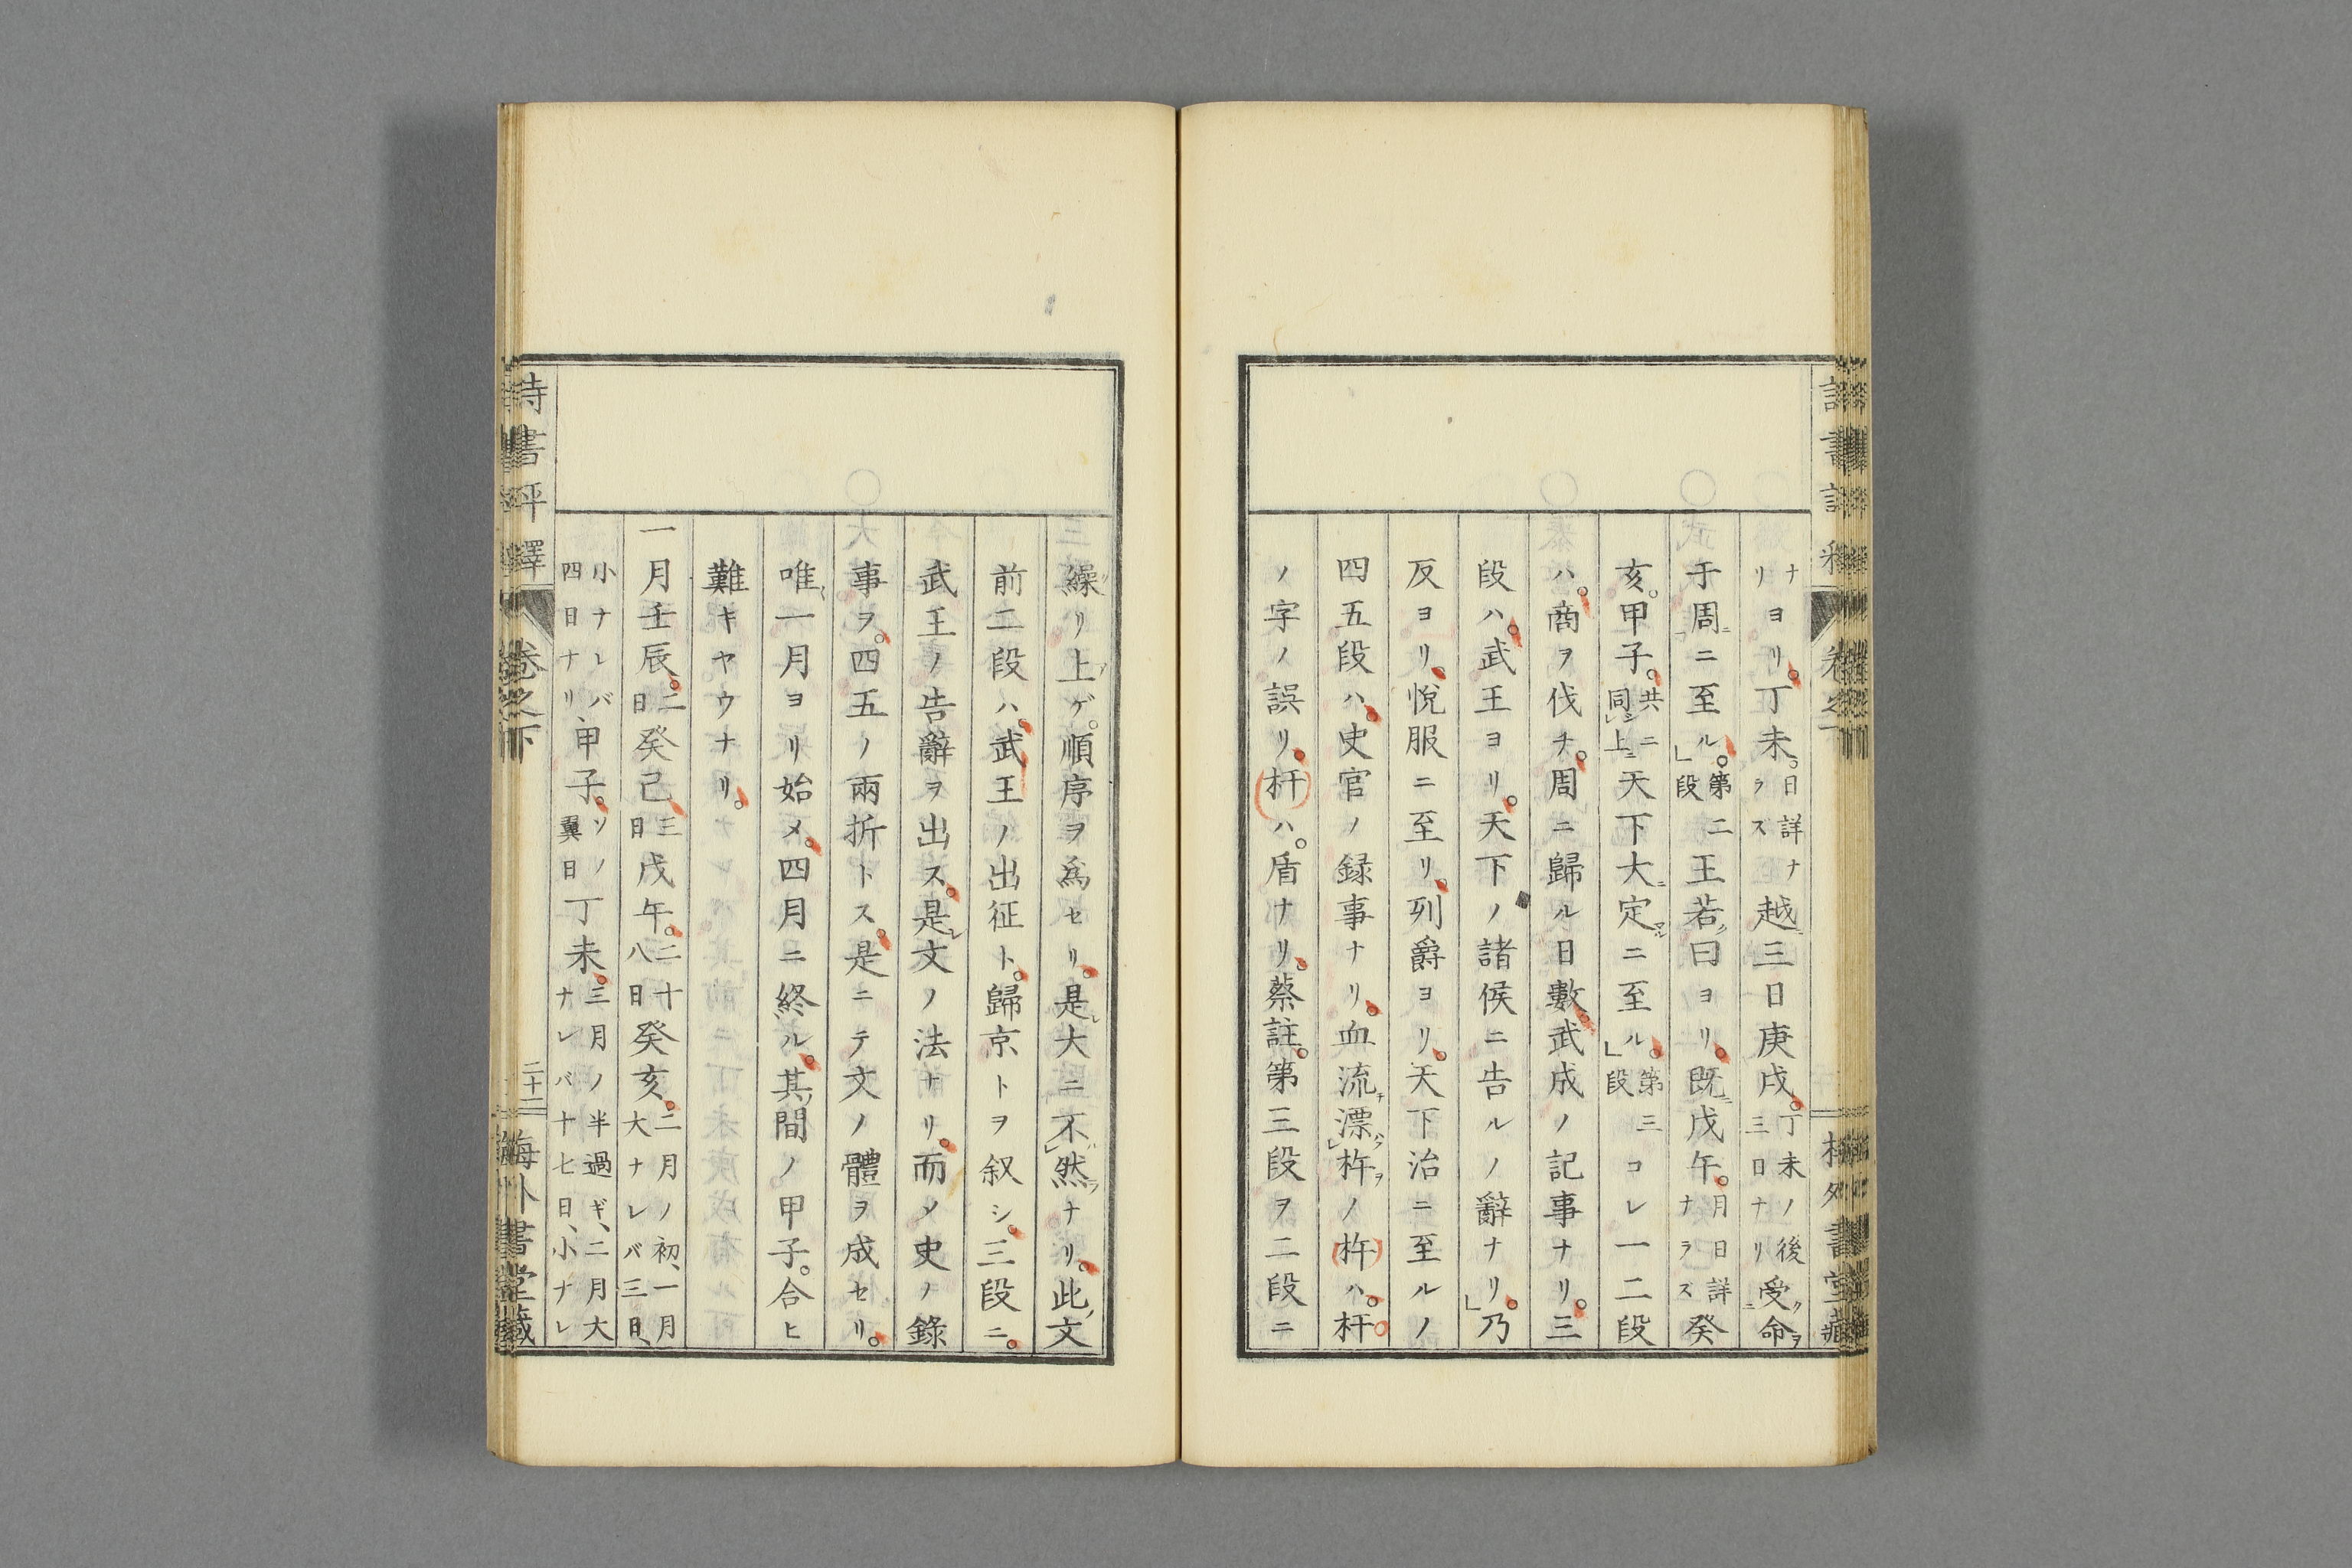 ナリヨリ。丁未。日詳ナラズ越三日庚戌。丁未ノ後三日ナリ受命
于周ニ至ル。第二段王若曰ヨリ。既戊午。月日詳ナラズ癸
亥。甲子。共ニ同上天下大定ニ至ル。第三段コレ一二段
ハ。商ヲ伐チ。周ニ歸ル日數。武成ノ記事ナリ。三
段ハ。武王ヨリ。天下ノ諸侯ニ告ルノ辭ナリ。乃
反ヨリ。悅服ニ至リ。列爵ヨリ。天下治ニ至ルノ
四五段ハ。史官ノ録事ナリ。血流漂杵ノ杵ハ。杆
ノ字ノ誤リ。杆ハ。盾ナリ。蔡註。第三段ヲ二段ニ
繰リ上ゲ。順序ヲ爲セリ。是大ニ不然ナリ。此文
前二段ハ。武王ノ出征ト。歸京トヲ叙シ。三段ニ。
武王ノ告辭ヲ出ス。是文ノ法ナリ。而メ史ノ錄
事ヲ。四五ノ兩折トス。是ニテ文ノ體ヲ成セリ。
唯一月ヨリ始メ。四月ニ終ル。其間ノ甲子。合ヒ
難キヤウナリ。
一月壬辰。二日癸己。三日戊午。二十八日癸亥。二月ノ初、一月大ナレバ三日、
小ナレバ四日ナリ甲子。ソノ翼日丁未。三月ノ半過ギ、二月大ナレバ十七日、小ナレ
詩書評釋 卷之下 二十二 梅外書堂藏